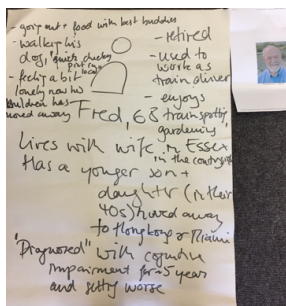 - going out + food with best buddies
- walking his
dog, quick chucky
pint in local
- feeling a bit
lonely now his
children has
moved away
- retired
- used to
work as
train driver
- enjoys
trainspotting
gardening
Fred, 68
Lives with wife in Essex
in the countryside
Has a younger son +
daughter (in their
40s) moved away
to Hong Kong & Miami
"Diagnosed" with cognitive
impairment for 5 year
and getting worse